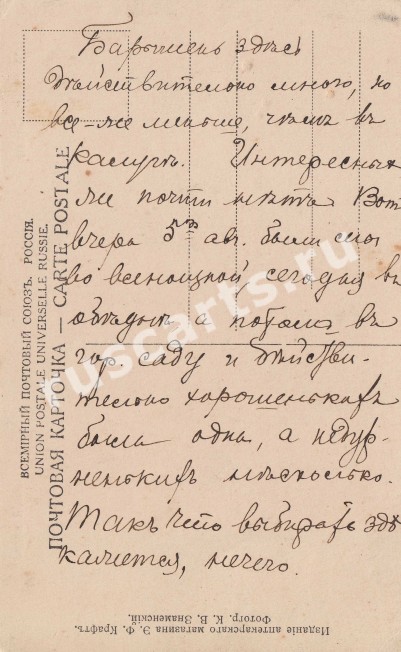 Барышень здѣсь
дѣйствительно много, но
все-же меньше, чѣмъ въ
Калугѣ. Интересныхъ
же почти нѣтъ. Вотъ
вчера 5го авг. были мы
во всенощной, сегодня въ
обѣднѣ а потомъ въ
гор. саду и дѣйстви-
тельно хорошенькая
была одна, а недур-
ненькихъ нѣсколько.
Такъ что выбирать здѣ
кажется, нечего.
ВСЕМІРНЫЙ ПОЧТОВЫЙ СОЮЗЪ. РОССІЯ.
UNION POSTALE UNIVERSELLE RUSSIE.
ПОЧТОВАЯ КАРТОЧКА — CARTE POSTALE
Изданіе аптекарскаго магазина Э. Ф. Крафтъ.
Фотогр. К. В. Знаменскій.
ruscarts.ru